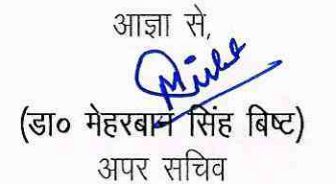 आज्ञा से,
(डा० मेहरबान सिंह बिष्ट)
अपर सचिव